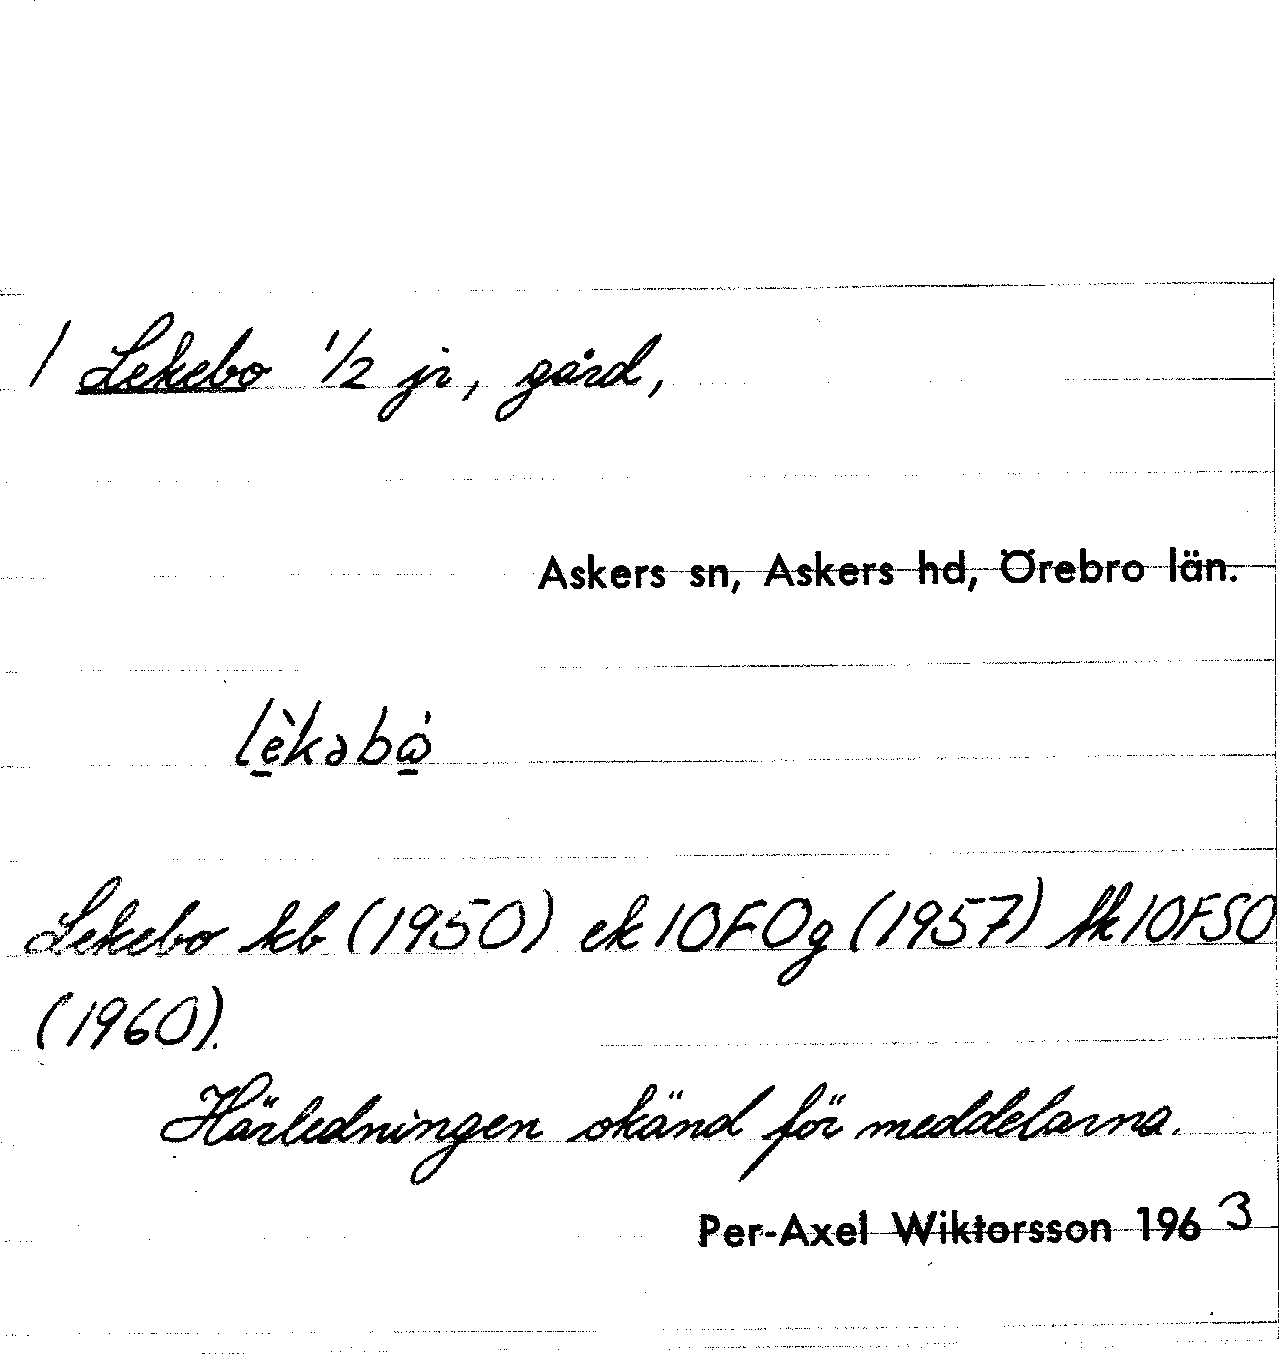 / Lekebo 1/2 jr, gård,
Askers sn, Askers hd, Örebro län.
lè̱kəbώ̱
Lekebo kb (1950) ek 10F0g (1957) tk 10FSO
(1960).
Härledningen okänd för meddelarna.
Per-Axel Wiktorsson 1963